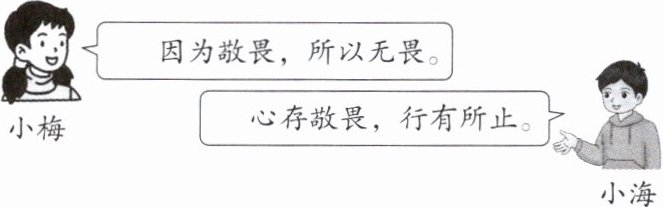 因为敬畏，所以无畏。
小梅
心存敬畏，行有所止。
小海